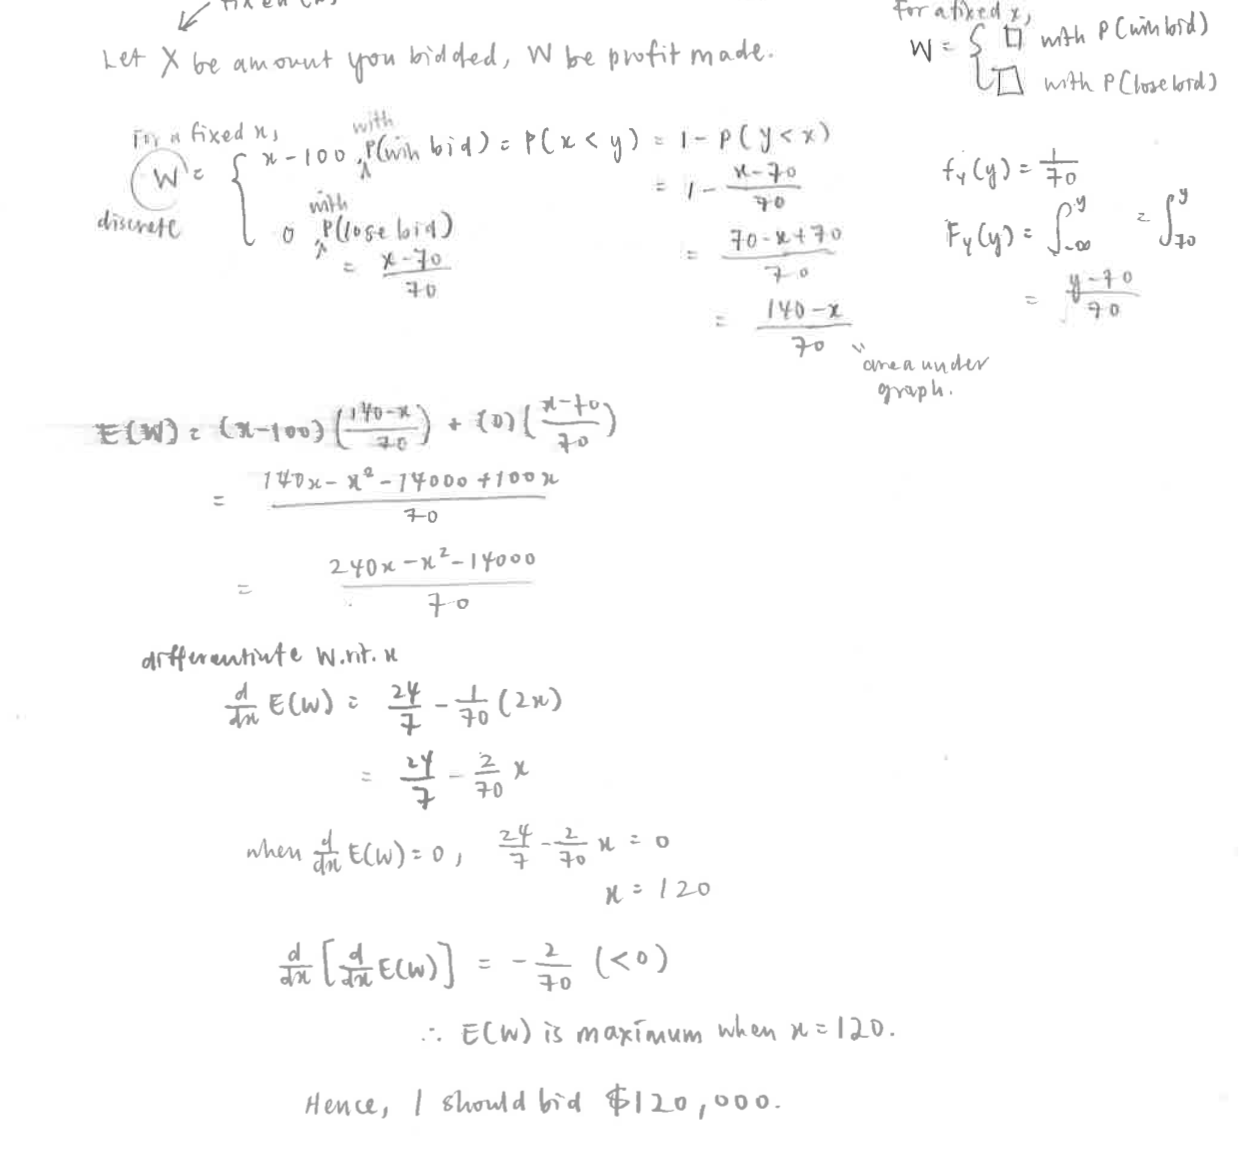 Let X be amount you bidded, W be profit made.
For a fixed x,
W = { □ with P(win bid)
□ with P(lose bid)
For a fixed x,
W = { x-100, with P(win bid) = P(x < y) = 1 - P(y < x)
discrete
0 with P(lose bid)
= x-70/70
= 1 - x-70/70
= 70-x+70/70
= 140-x/70
"area under
graph.
f_Y(y) = 1/70
F_Y(y) = ∫_{-∞}^{y} = ∫_{70}^{y}
= y-70/70
E(W) = (x-100)(140-x/70) + (0)(x-70/70)
= 140x - x² - 14000 + 100x/70
= 240x - x² - 14000/70
differentiate w.r.t. x
d/dx E(W) = 24/7 - 1/70 (2x)
= 24/7 - 2/70 x
when d/dx E(W) = 0, 24/7 - 2/70 x = 0
x = 120
d/dx [d/dx E(W)] = - 2/70 (<0)
∴ E(W) is maximum when x = 120.
Hence, I should bid $120,000.